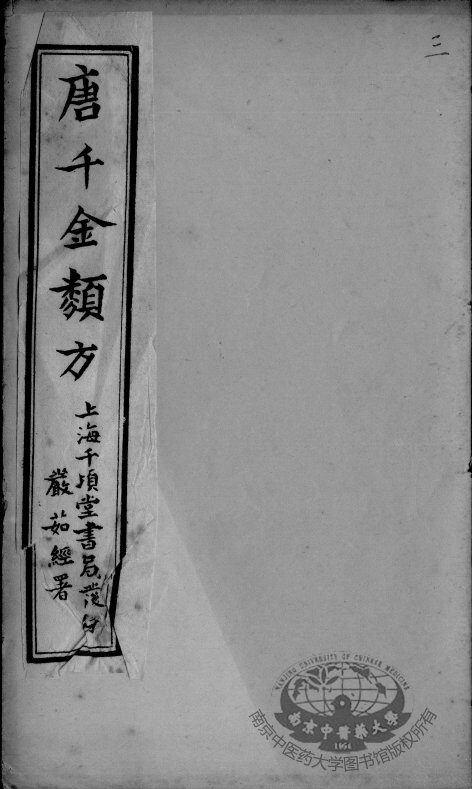 三
唐千金類方
上海千頃堂書局發行
嚴茹經署
NANJING UNIVERSITY OF CHINESE MEDICINE
南京中醫藥大學
1954
南京中医药大学图书馆版权所有